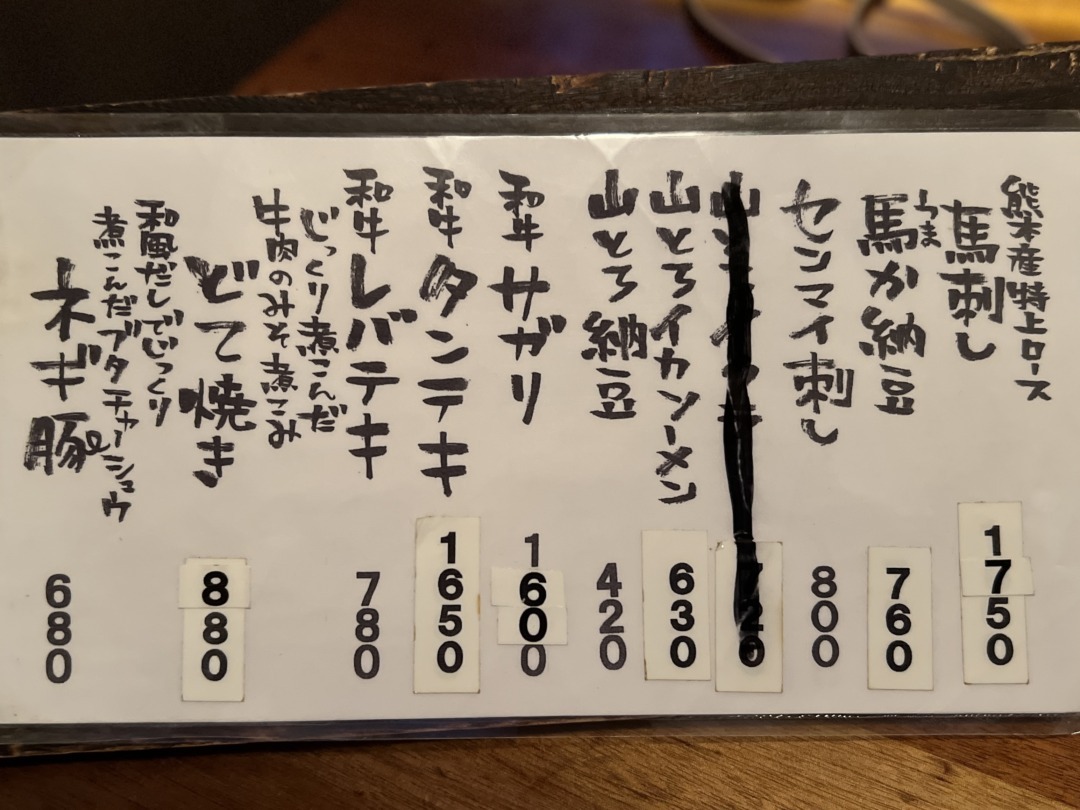 熊本産特上ロース
馬刺し 1750
うま
馬か納豆 760
センマイ刺し 800
山とろイカソーメン 630
山とろ納豆 420
和牛サガリ 1600
和牛タンテキ 1650
和牛レバテキ 780
じっくり煮こんだ
牛肉のみそ煮こみ
どて焼き 880
和風だしでじっくり
煮こんだブタチャーシュウ
ネギ豚 680